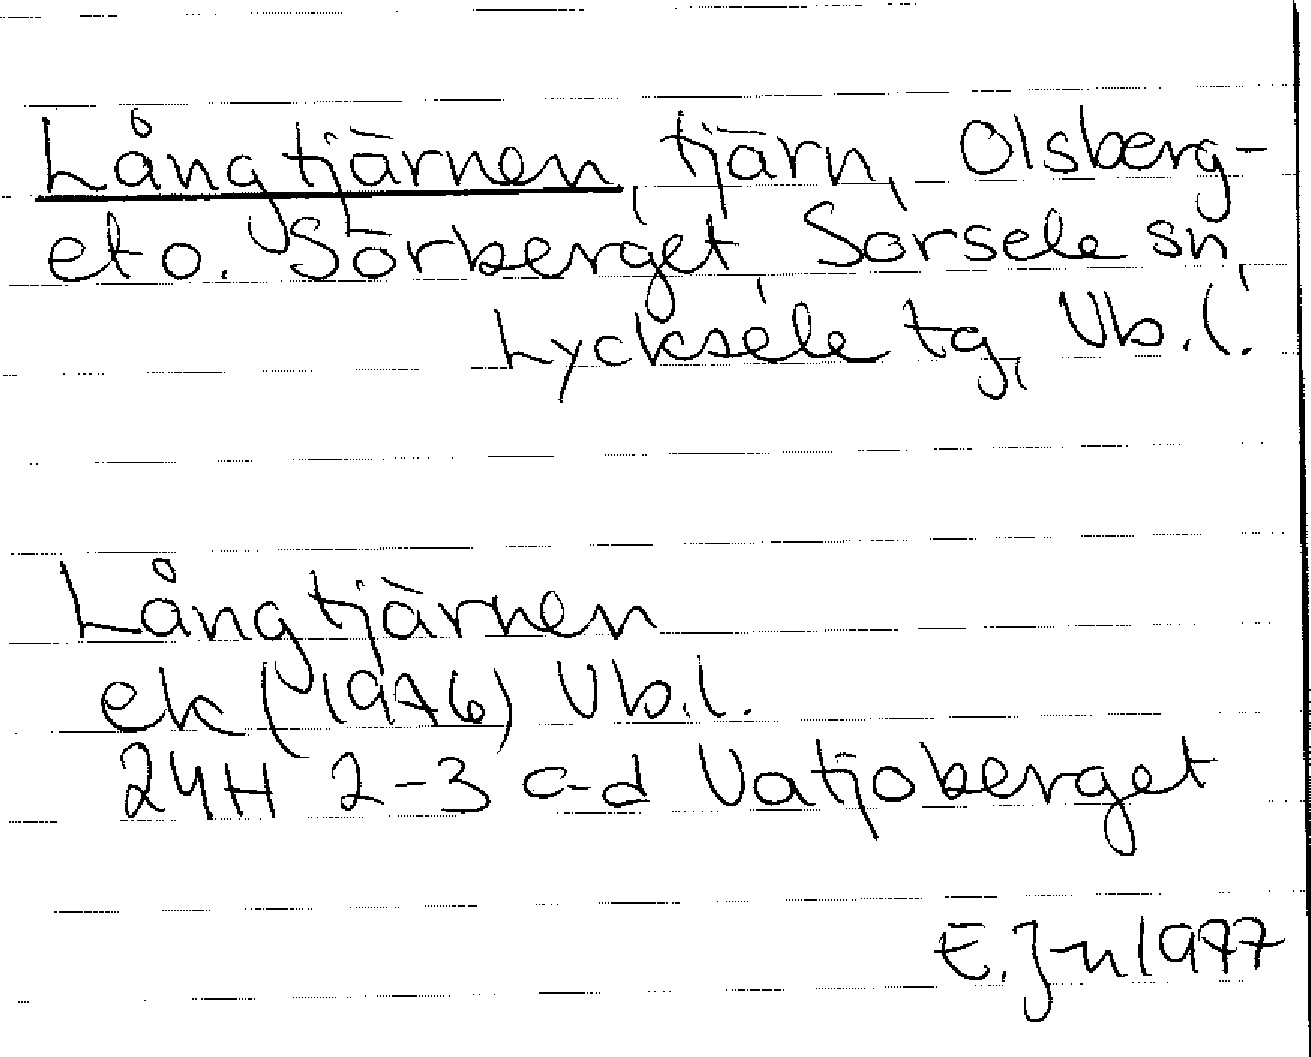 Långtjärnen, tjärn, Olsberg-
et o. Sörberget, Sorsele sn,
Lycksele tg, Vb.l.
Långtjärnen
ek (1976) Vb.l.
24H 2-3 c-d Vatjoberget
E. J-n 1977